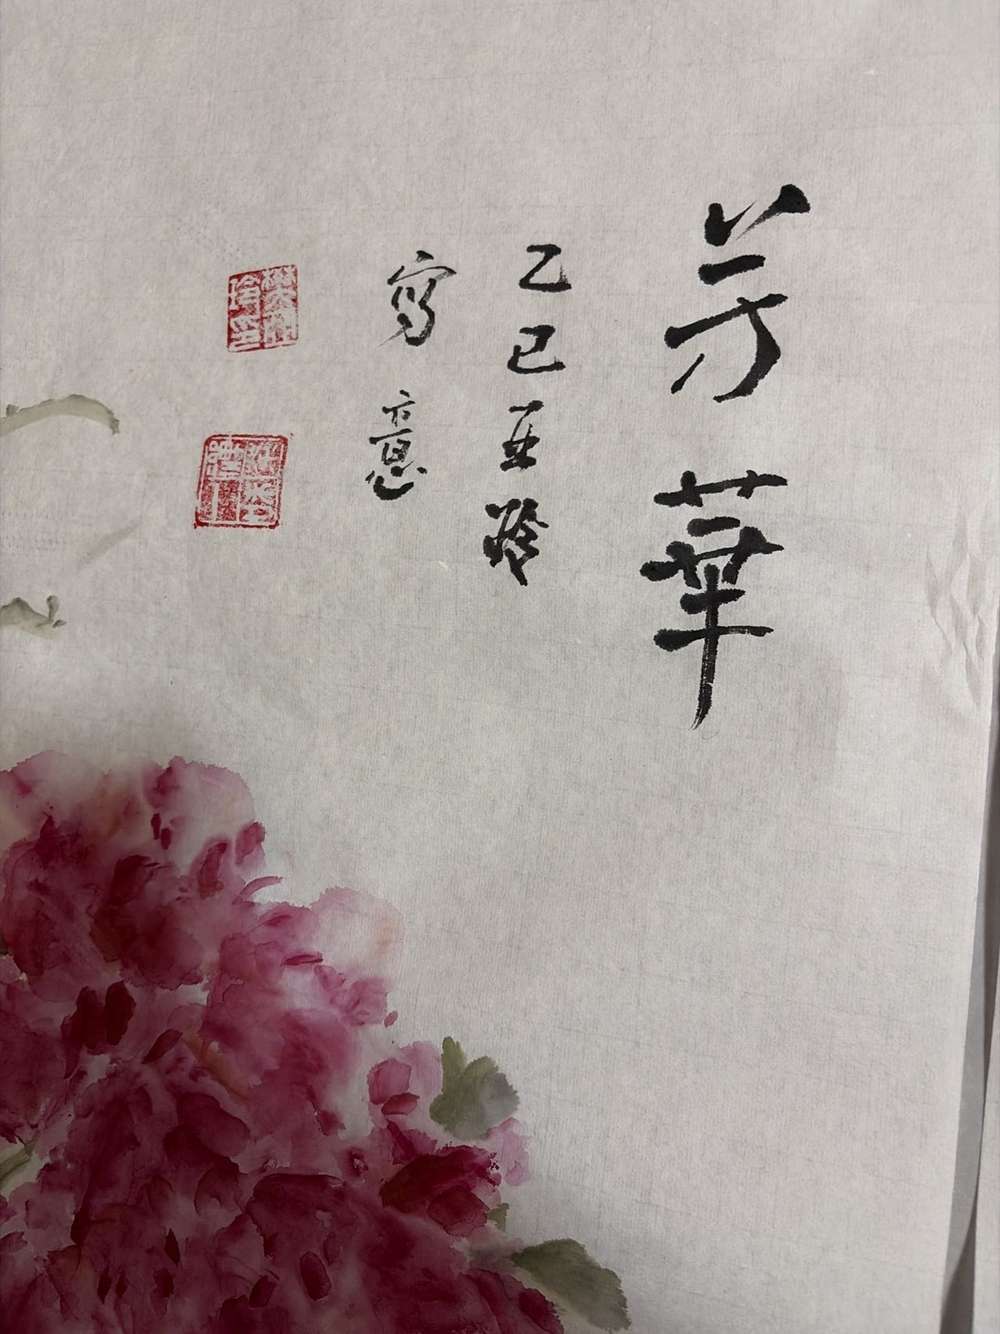 芳華
乙巳亚玲
寫意